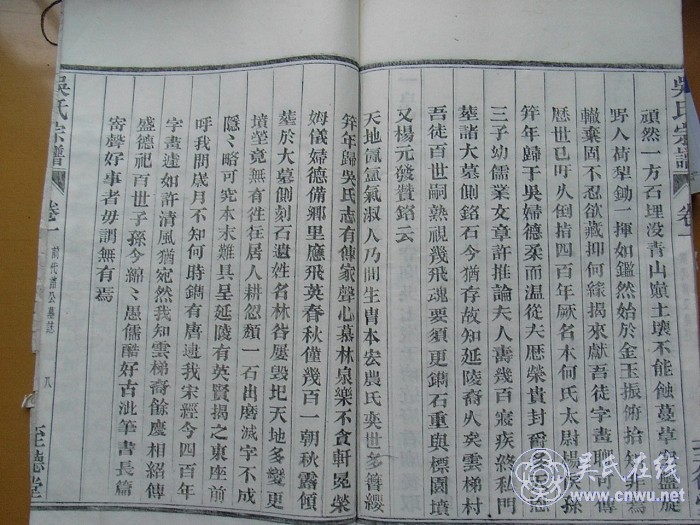 吳氏宗譜
卷
頑然一方石埋没青山巔土壤不能蝕蔓草與盤旋
野人荷犁鋤一揮如鑑然始於金玉振俯拾知為
轍棄固不忍欲藏抑何緣揭來獻吾徒字畫聊可傳
厯世已吁久倒指四百年厥名木何氏太尉楊侯孫
筓年歸于吳婦德柔而温從夫厯榮貴封爵
三子幼儒業文章許推論夫人壽幾百寢疾終私門
塟諸大墓側銘石今猶存故知延陵裔久矣雲梯村
吾徒百世嗣熟視幾飛魂要須更鐫石重與標園墳
又楊元發贊銘云
天地氤氳氣淑人乃間生胄本宏農氏奕世多簪纓
筓年歸吳氏志有傳家聲心慕林泉樂不貪軒冕榮
姆儀婦德備鄉里應飛英春秋僅幾百一朝秋露傾
塟於大墓側刻石遺姓名林谷屢毁圮天地多變更
墳塋竟無有徃徃在居人耕忽頹一石出磨滅字不成
隱〻略可究本末難具呈延陵有英賢揭之東座前
呼我問歲月不知何時鐫有唐逮我宋經今四百年
字畫遽如許清風猶宛然我知雲梯裔餘慶相紹傳
盛德祀百世子孫今綿〻愚儒酷好古泚筆書長篇
寄聲好事者毋謂無有焉
吳氏宗譜
卷一
前代諸公墓誌
八
至德堂
吴氏网
www.cnwu.net